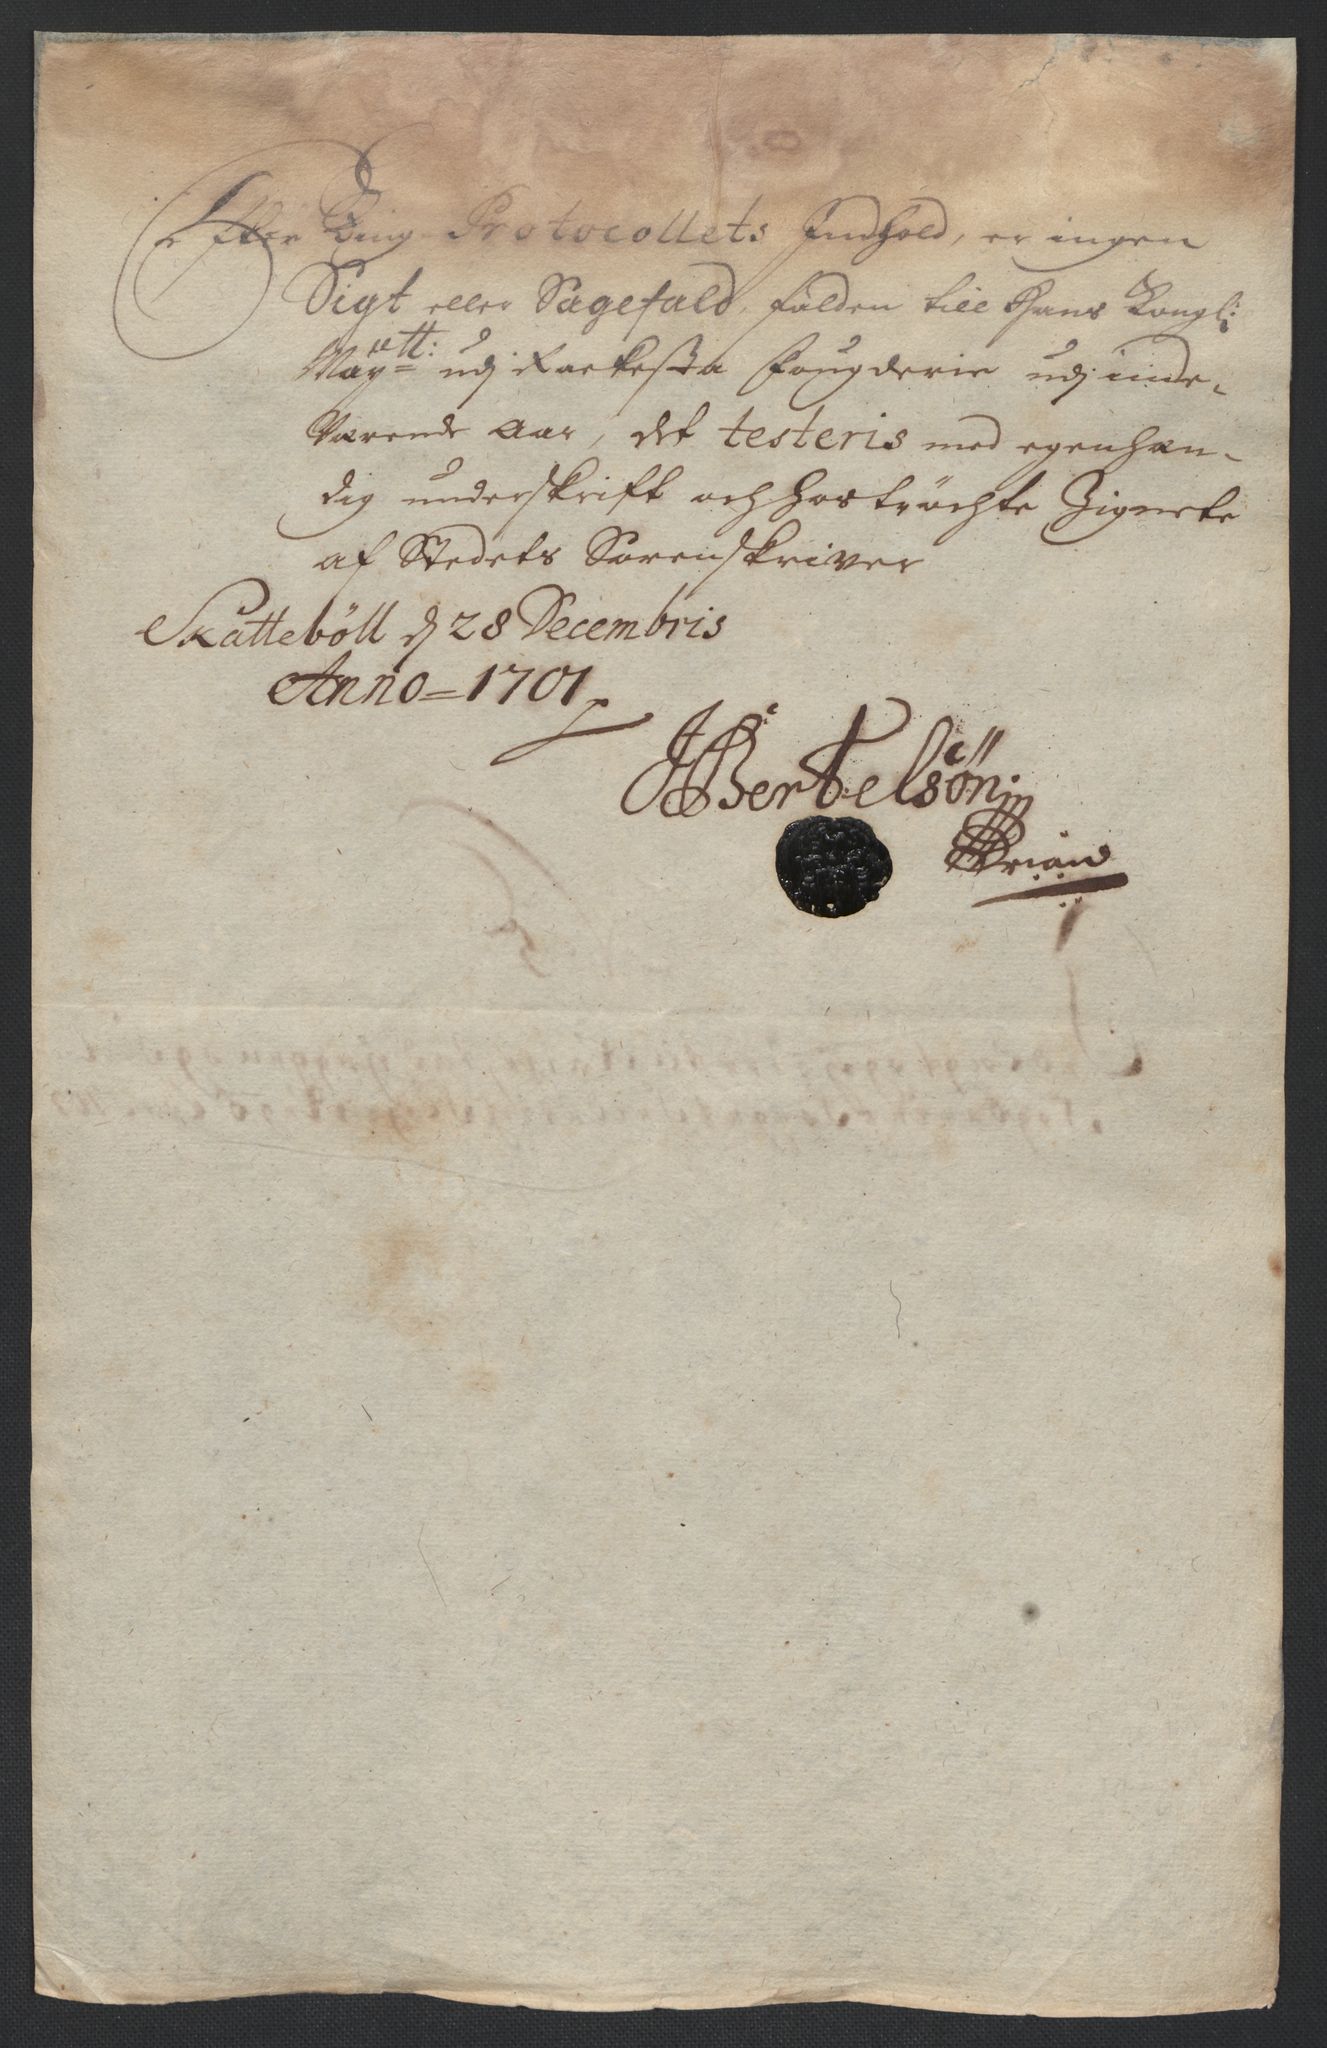 Efter Ting Protocollets Indhold, er ingen
Sigt eller Sagefald, falden till Hans Kongl:
May:tt: udj Rackestia Fougderie udj inde-
værende Aar, det testeris med egenhæn-
dig underskrift och hoströchte Zignete
af Stedets Sorenskriver
Skattebôll d 28 Decembris
Anno = 1701
JBertelsön